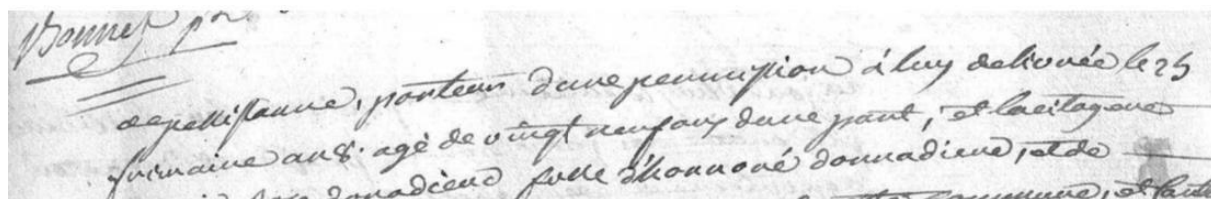 Bonnet pre
de pellissanne, porteur d'une permission à luy delivrée le 25
frimaire an 8. agé de vingt neuf ans d'une part, et la citoyene
donnadieu fille d'honnoré donnadieu, et de
commune, et